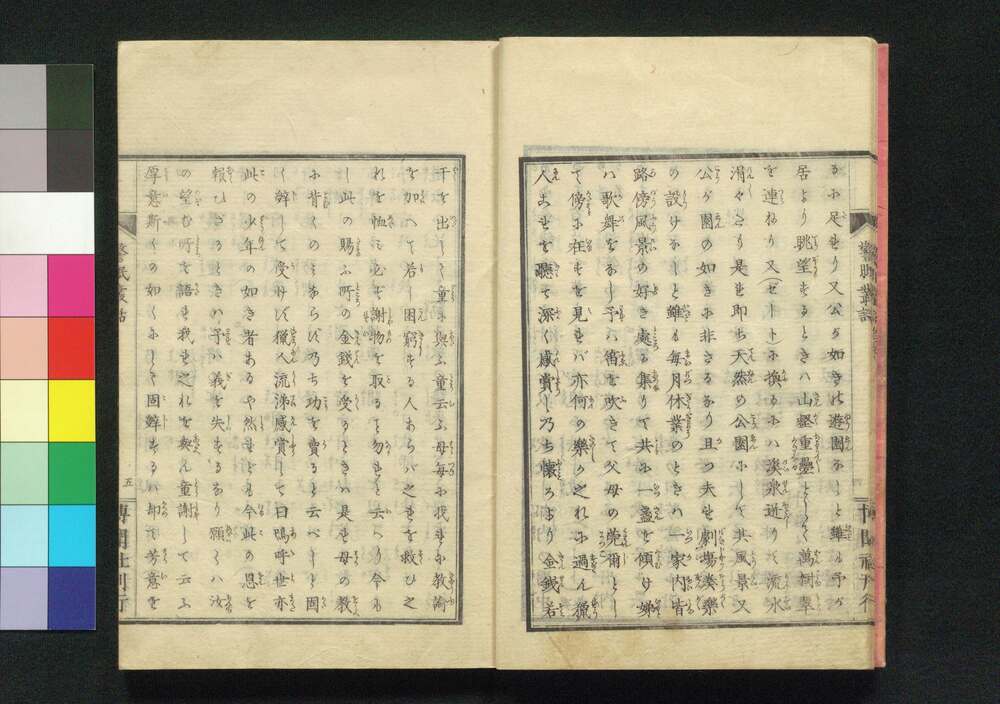 るに足れり又公が如き此遊園なしと雖も予が
居より眺望するときハ山壑重疊として萬樹
を連ねり又ゼートに換るにハ淡泉迸りて流水
滑々たり是れ即ち天然の公園にして其風景又
公が園の如きに非ざるなり且つ夫れ劇場樂
の設けなしと雖も毎月休業のときハ一家内皆
路傍風景の好き處に集りて共に一盞を傾け姉
ハ歌舞をなし予ハ笛を吹きて父母の莞爾とし
て傍に在すを見れバ亦何の樂か之れに過ん獵
人これを聽て深く感賞し乃ち懷ろより金錢若
干を出して童に與ふ童云ふ母毎に我等に教諭
を加へて若し困窮する人あらバ之れを救ひ之
れを恤み必ず謝物を取ること勿れと云へり今も
し此の賜ふ所の金錢を受るときハ是れ母の教
に背くのみならず乃ち功を賣ると云べしと固
く辭して受けず獵人流涕感賞して曰嗚呼世亦
此の少年の如き者あるや然れども今此の恩を
報ひざるときハ予ハ義を失するなり願くハ汝
の望む所を語れ我れ之れを與ん童謝して云ふ
厚意斯くの如くにして固辭するハ却て芳意を
五
博聞社刊行